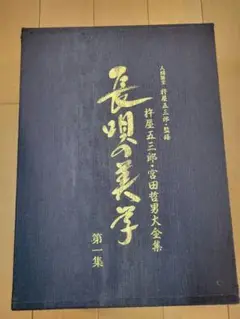 人間国宝 杵屋五三郎・監修
杵屋五三郎・宮田哲男大全集
長唄の美学
第一集